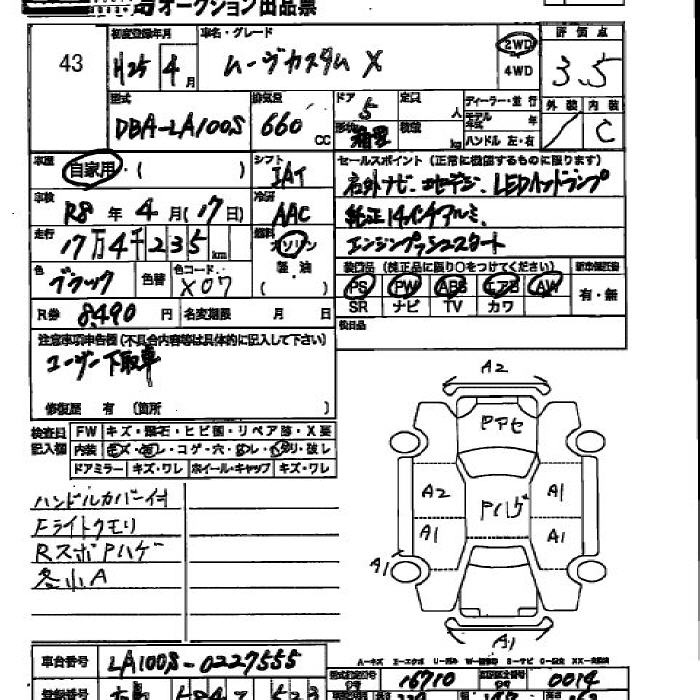 島オークション出品票
43
初度登録年月
H25年4月
車名・グレード
ムーヴカスタム X
2WD
4WD
評価点
3.5
型式
DBA-LA100S
排気量
660 cc
ドア
5
定員
人
形状
積載
kg
ディーラー・並行
モデル年式
年
ハンドル 左・右
外装
内装
C
車歴
自家用・( )
シフト
IAT
車検
R8年4月(17日)
冷房
AAC
走行
17万4千235km
燃料
ガソリン
軽・油
( )
色
ブラック
色替
色コード
X07
R券
8,490円
名変期限
月 日
セールスポイント(正常に機能するものに限ります)
社外ナビ、地デジ、LEDヘッドランプ
純正14インチアルミ、
エンジンプッシュスタート
装備品(純正品に限り○をつけてください)
PS PW ABS エアB AW
SR ナビ TV カワ
新車保証書
有・無
後日品
注意事項申告欄(不具合内容等は具体的に記入して下さい)
ユーザー下取車
修復歴 有(箇所 )
検査員記入欄
FW キズ・飛石・ヒビ割・リペア跡・X要
内装 キズ・汚レ・コゲ・穴・破レ
ドアミラー キズ・ワレ ホイール・キャップ キズ・ワレ
ハンドルカバー付
Fライトクモリ
RスポPハゲ
各小A
A2
Pアセ
A2
A1
Pハゲ
A1
A1
A1
A1
車台番号
LA100S-0227555
A-キズ
型式指定番号
16710
類別区分番号
0014
登録番号